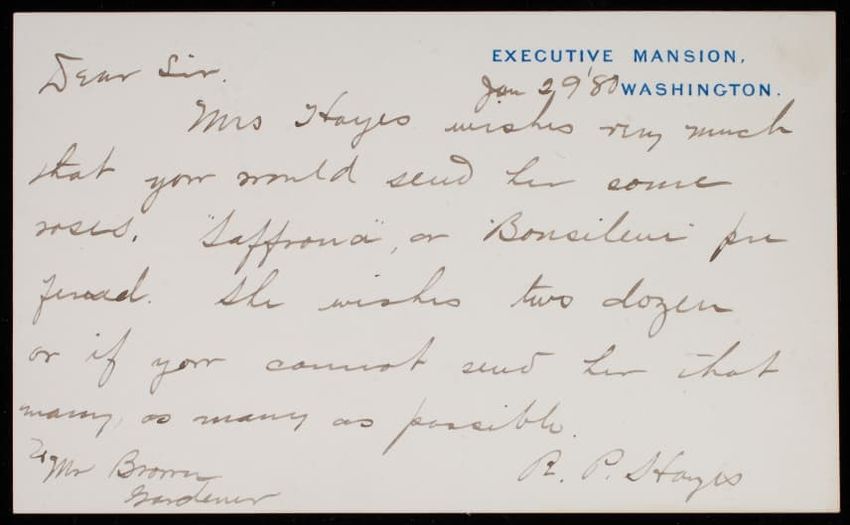 EXECUTIVE MANSION,
Jan 29 '80 WASHINGTON.
Dear Sir.
Mrs Hayes wishes very much
that you would send her some
roses. "Saffrona", or "Bonsileni" pre
ferred. She wishes two dozen
or if you cannot send her that
many, as many as possible.
R. P. Hayes
To Mr Brown
Gardener